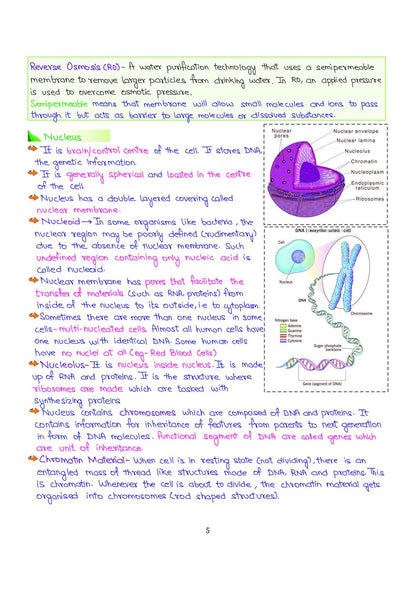 Reverse Osmosis (RO)- A water purification technology that uses a semipermeable
membrane to remove larger particles from drinking water. In RO, an applied pressure
is used to overcome osmotic pressure.
Semipermeable means that membrane will allow small molecules and ions to pass
through it but acts as barrier to large molecules or dissolved substances.
Nucleus
It is brain/control centre of the cell. It stores DNA,
the genetic information.
It is generally spherical and located in the centre
of the cell
Nucleus has a double layered covering called
nuclear membrane.
Nucleoid→ In some organisms like bacteria, the
nuclear region may be poorly defined (rudimentary)
due to the absence of nuclear membrane. Such
undefined region containing only nucleic acid is
called nucleoid.
Nuclear membrane has pores that facilitate the
transfer of materials (such as RNA proteins) from
inside of the nucleus to its outside, i.e to cytoplasm.
Sometimes there are more than one nucleus in some
cells- multi-nucleated cells. Almost all human cells have
one nucleus with identical DNA. Some human cells
have no nuclei at all (eg-Red Blood Cells)
Nucleolus- It is nucleus inside nucleus. It is made
up of RNA and proteins. It is the structure where
ribosomes are made which are tasked with
synthesizing proteins
Nucleus contains chromosomes which are composed of DNA and proteins. It
contains information for inheritance of features from parents to next generation
in form of DNA molecules. Functional segment of DNA are called genes which
are unit of inheritance
Chromatin Material- When cell is in resting state (not dividing), there is an
entangled mass of thread like structures made of DNA, RNA and proteins. This
is chromatin. Whenever the cell is about to divide, the chromatin material gets
organised into chromosomes (rod shaped structures).
Nuclear pores
Nuclear envelope
Nuclear lamina
Nucleolus
Chromatin
Nucleoplasm
Endoplasmic reticulum
Ribosomes
DNA (Deoxyribonucleic acid)
Cell
Nucleus
Chromosome
DNA
Nitrogen base
Adenine
Guanine
Thymine
Cytosine
Sugar phosphate backbone
Gene (segment of DNA)
5